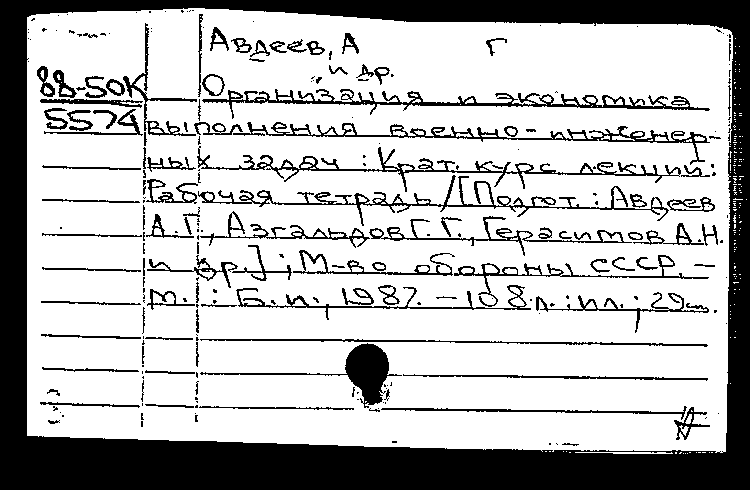 Авдеев, А Г
и др.
88-50К Организация и экономика
5574 выполнения военно-инженер-
ных задач : Крат. курс лекций :
Рабочая тетрадь / [Подгот. : Авдеев
А.Г., Азгальдов Г.Г., Герасимов А.Н.
и др.] ; М-во обороны СССР. –
М. : Б.и., 1987. – 108 л. : ил. ; 29 см.